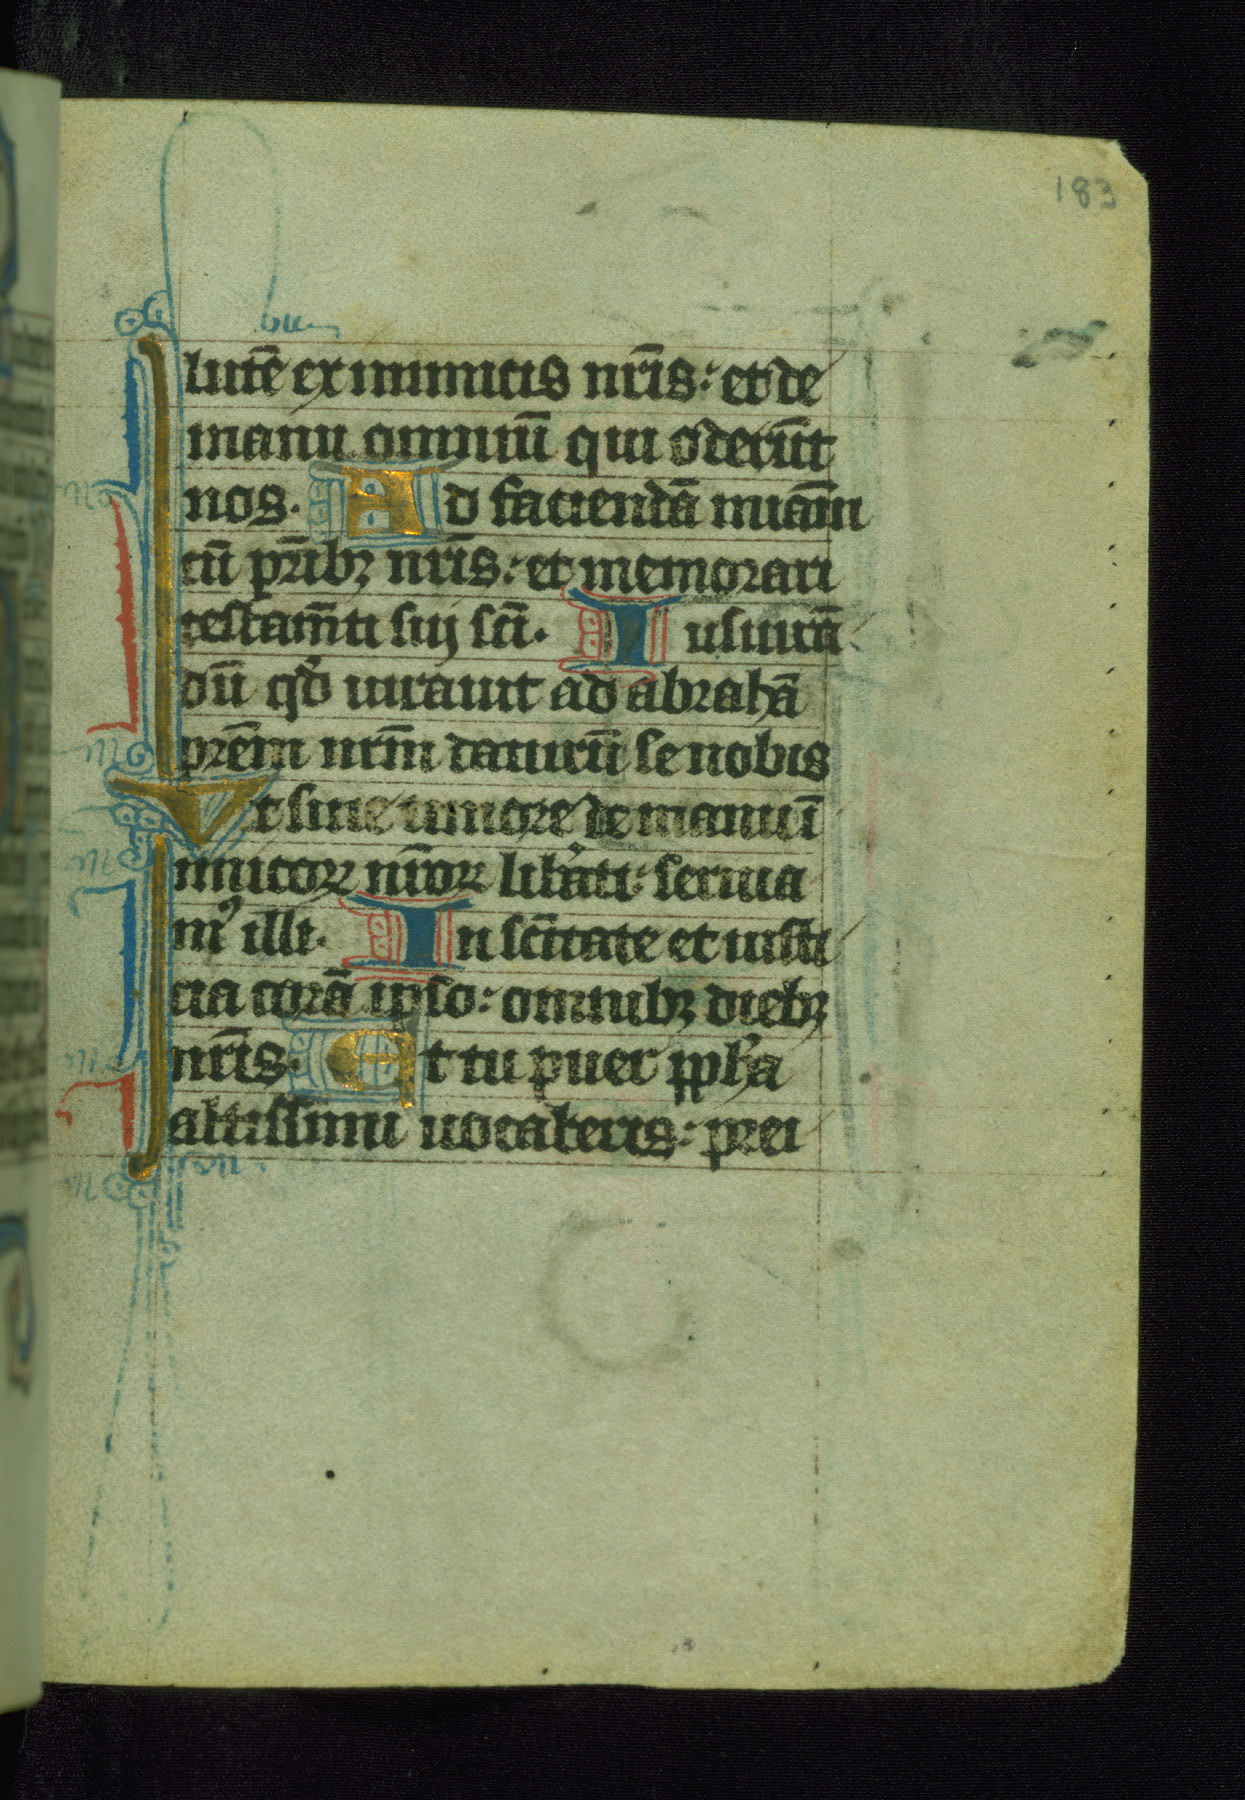 183
lutē ex inimicis nr̄is: et de
manu omniū qui oderūt
nos. Ad faciendā miāɱ
cū pr̄ibꝫ nr̄is: et memorari
testam̄ti sui sc̄i. Iusiurā
dū qd̓ iurauit ad abrahā
prēm nr̄m daturū se nobis
Vt sine timore de manu ī
imicoꝝ nr̄oꝝ lib̓ati: seruia
mꝰ illi. In sc̄itate et iusti
cia corā ipso: omnibꝫ diebꝫ
nr̄is. Et tu puer pph̓a
altissimi uocaberis: prei